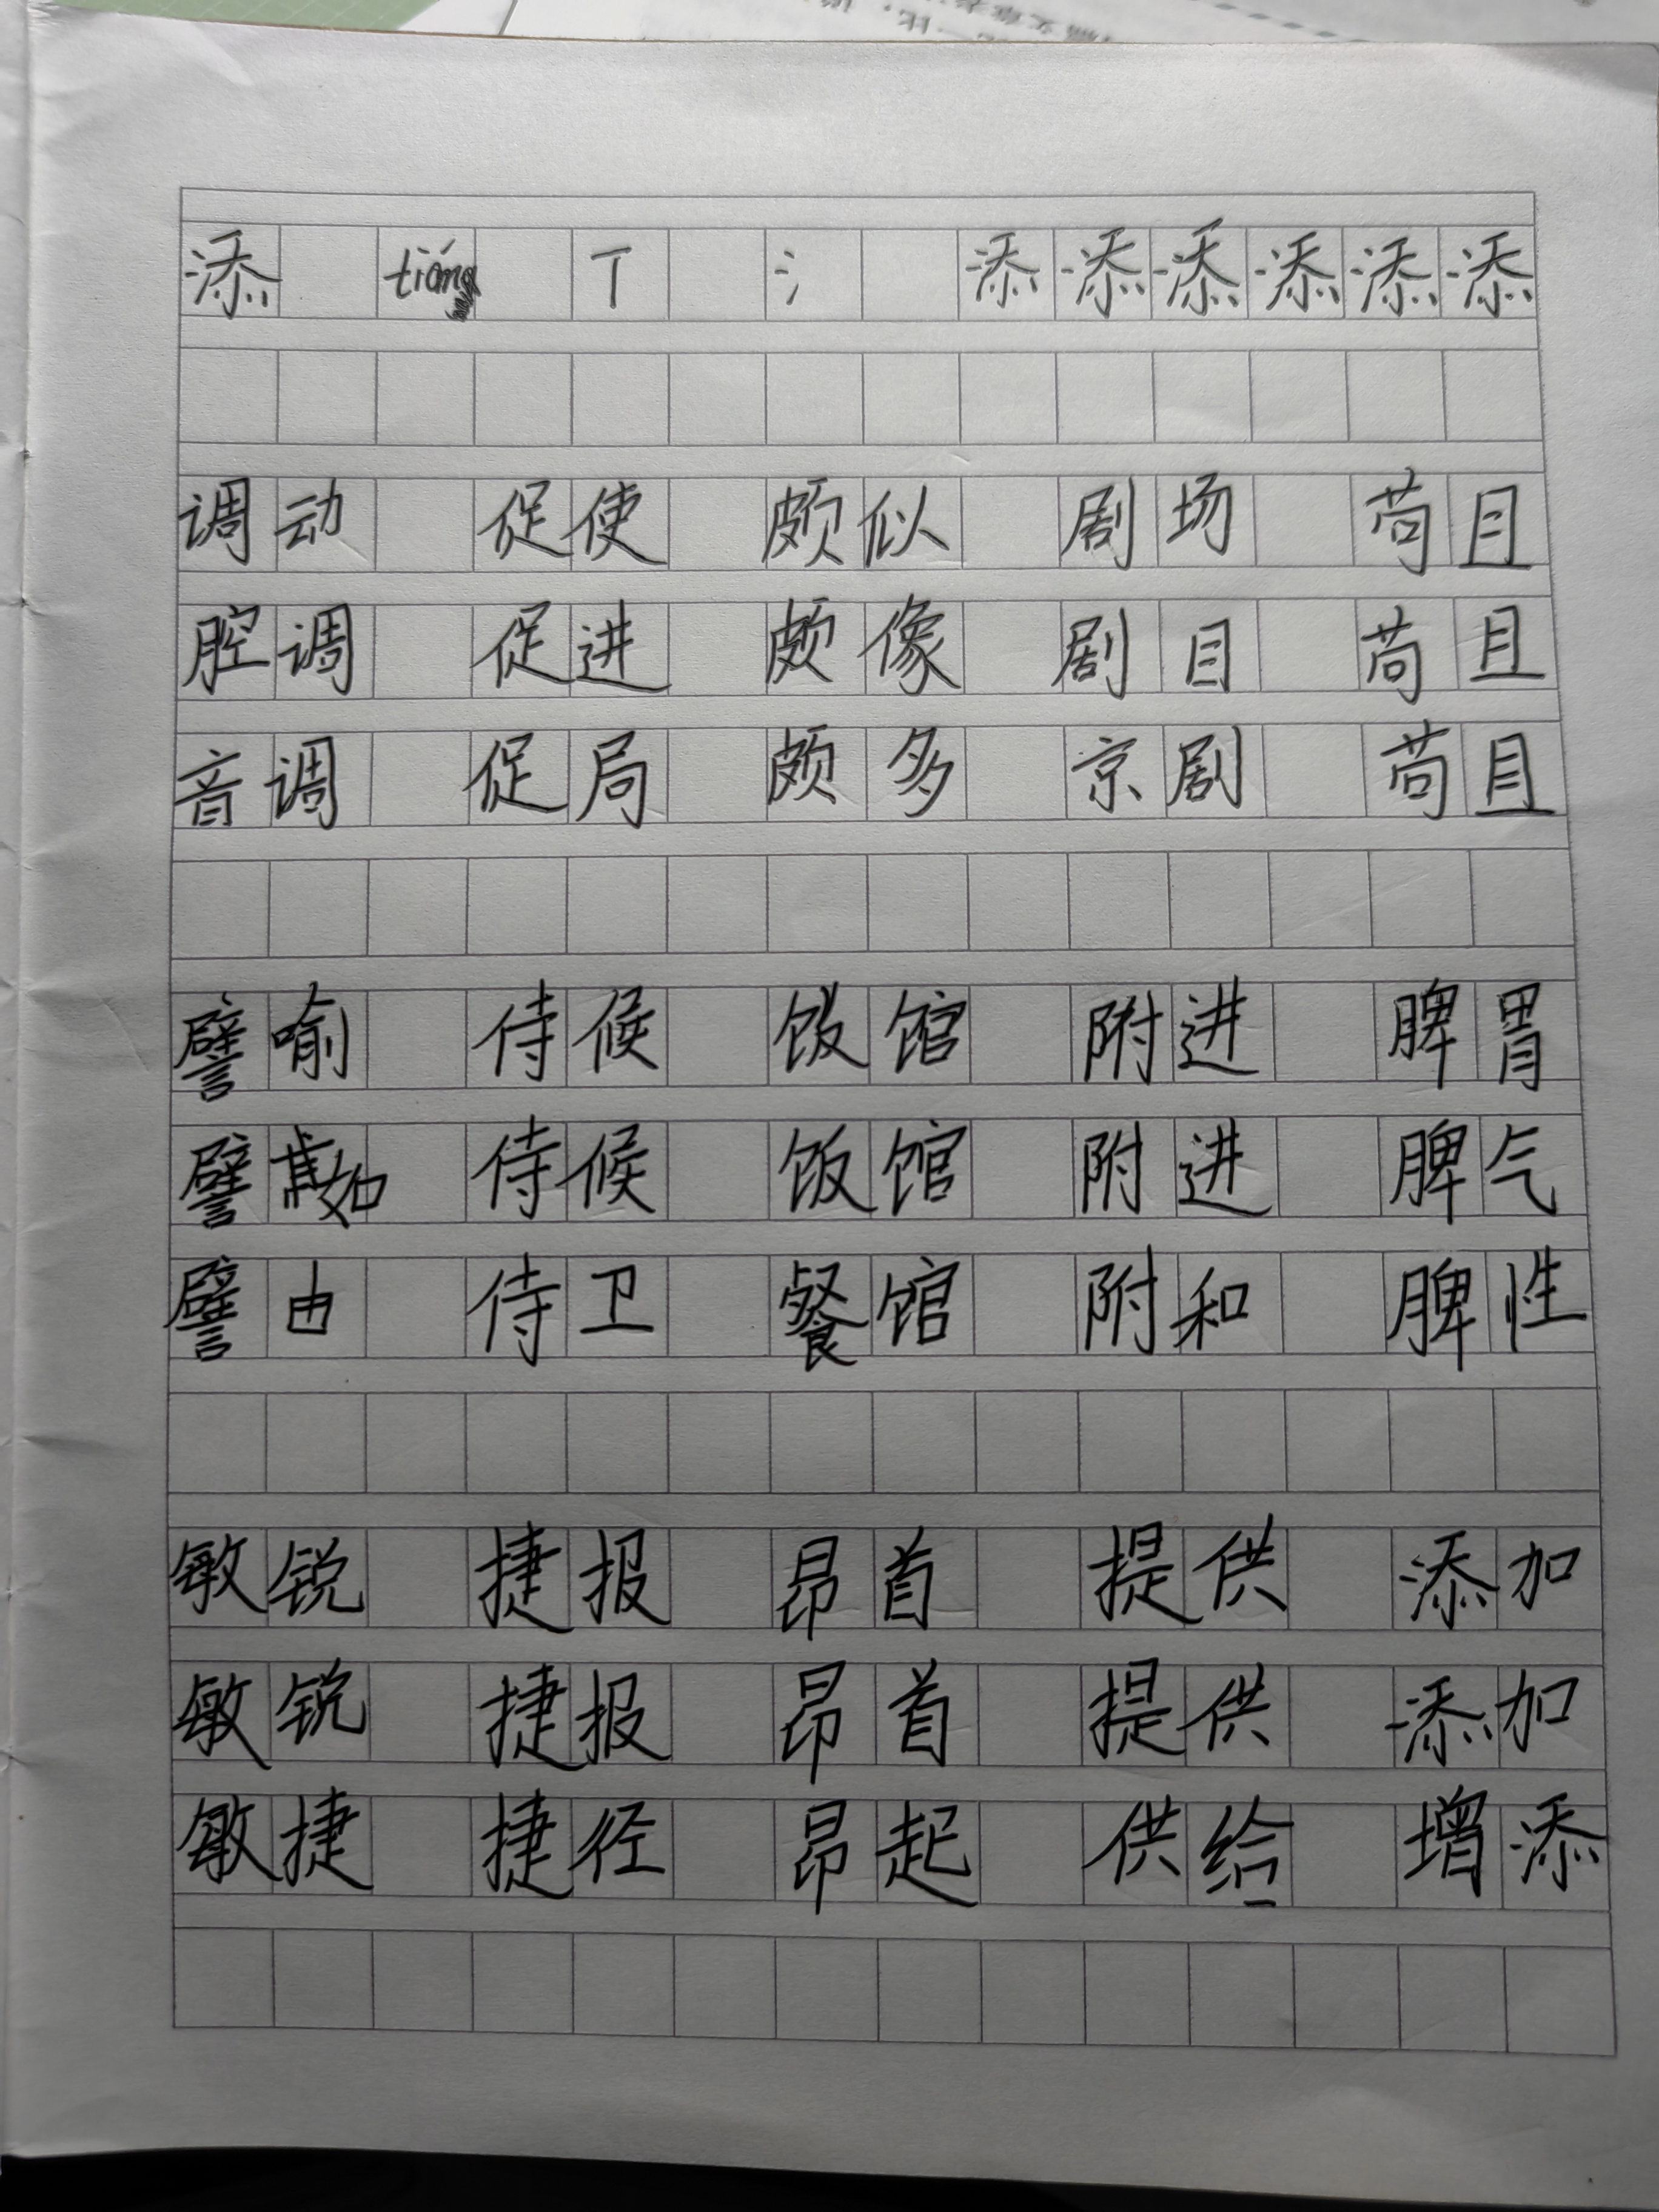 添 tián T 氵 添 添 添 添 添 添
调动 促使 颇似 剧场 苟且
腔调 促进 颇像 剧目 苟且
音调 促局 颇多 京剧 苟且
譬喻 侍候 饭馆 附进 脾胃
譬如 侍候 饭馆 附进 脾气
譬由 侍卫 餐馆 附和 脾性
敏锐 捷报 昂首 提供 添加
敏锐 捷报 昂首 提供 添加
敏捷 捷径 昂起 供给 增添